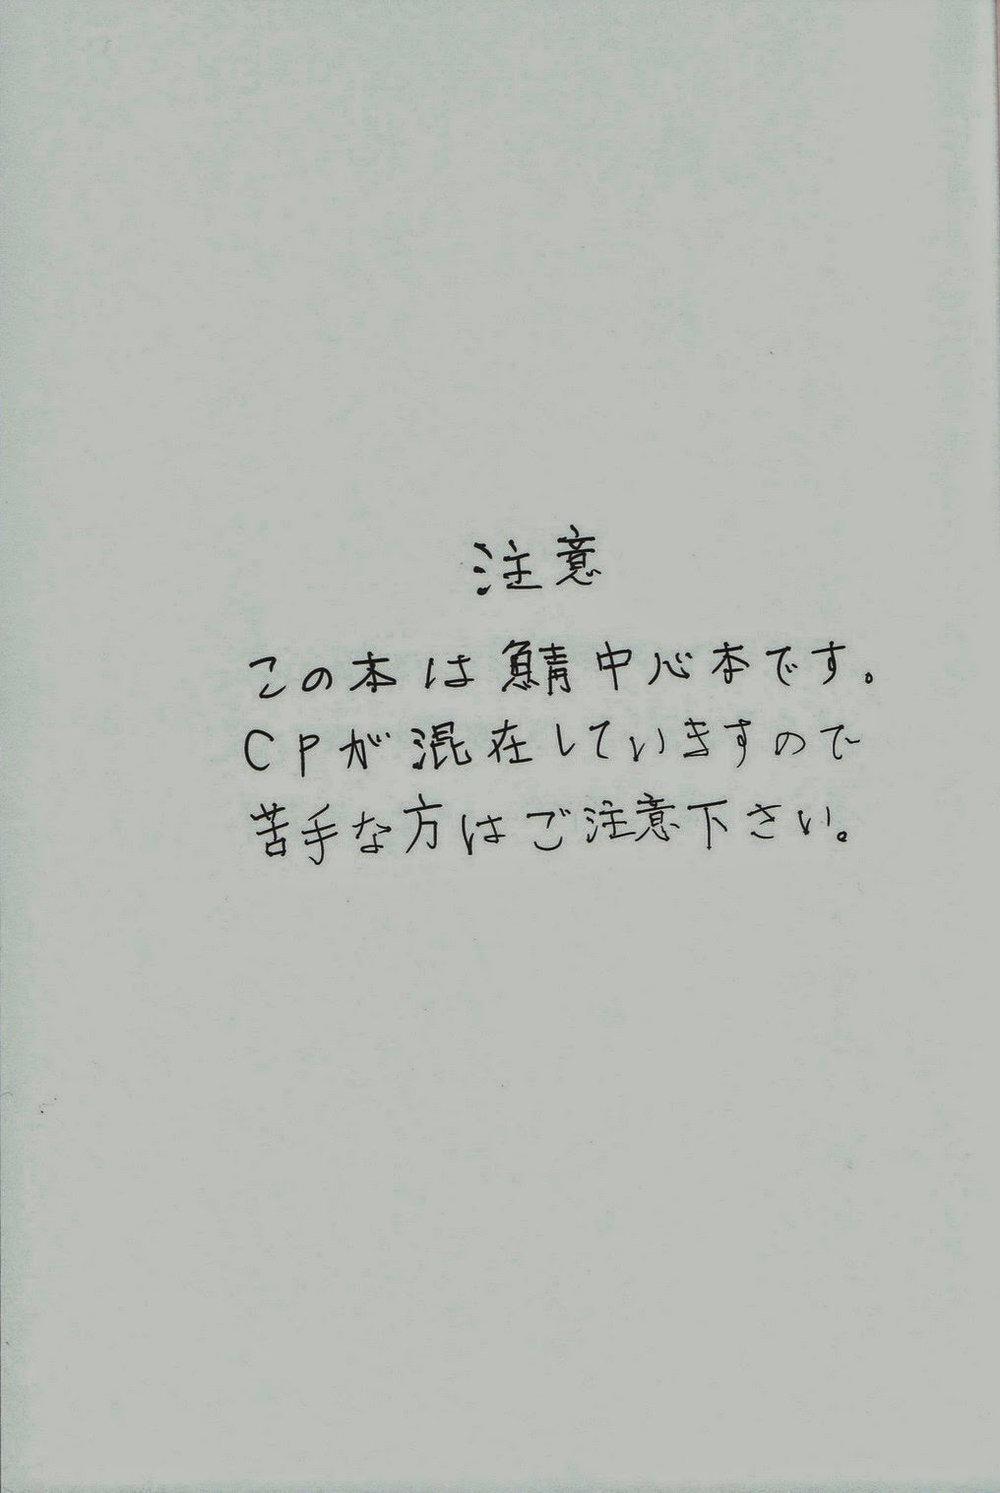 注意
この本は鯖中心本です。
CPが混在していますので
苦手な方はご注意下さい。